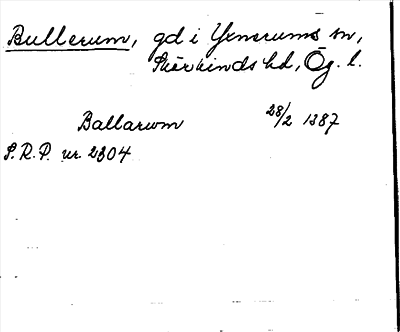 Bullerum, gd i Yxnerums sn,
Skärkinds hd, Ög. l.
Ballarwm 28/2 1387
S.R.P. nr. 2304